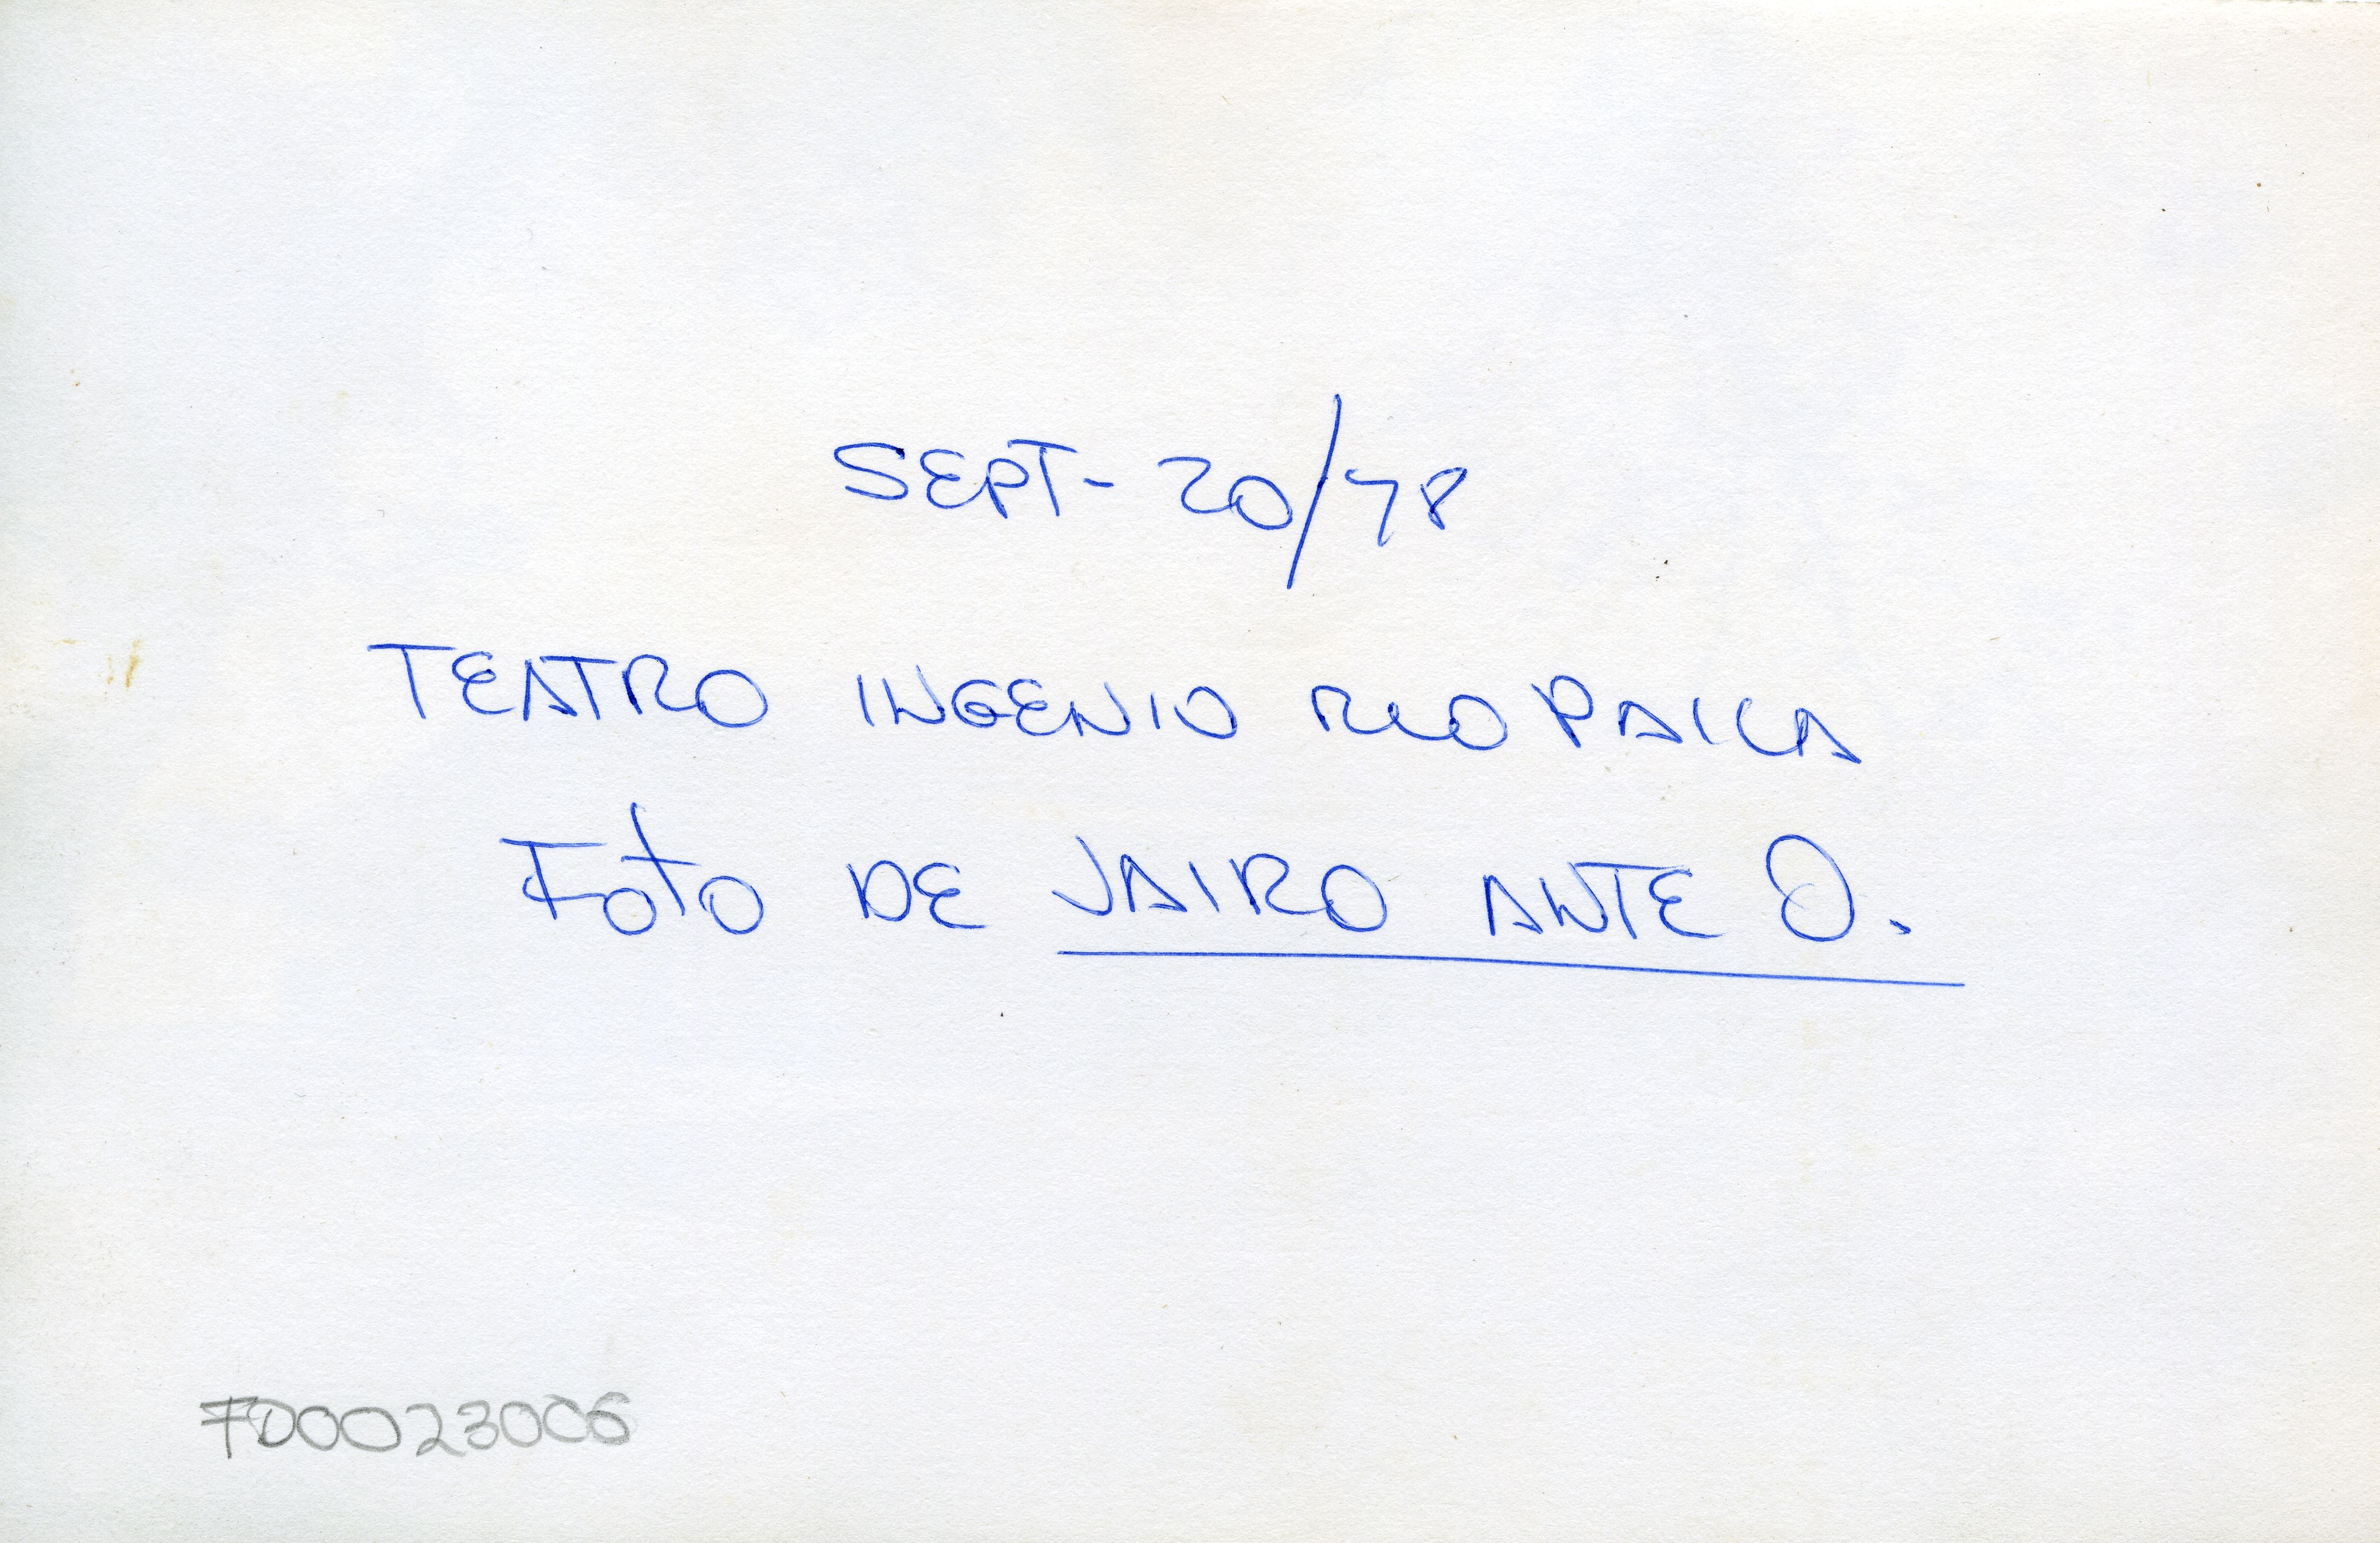 SEPT- 20/78
TEATRO INGENIO RIOPAILA
Foto DE JAIRO ANTE O.
FD0023006